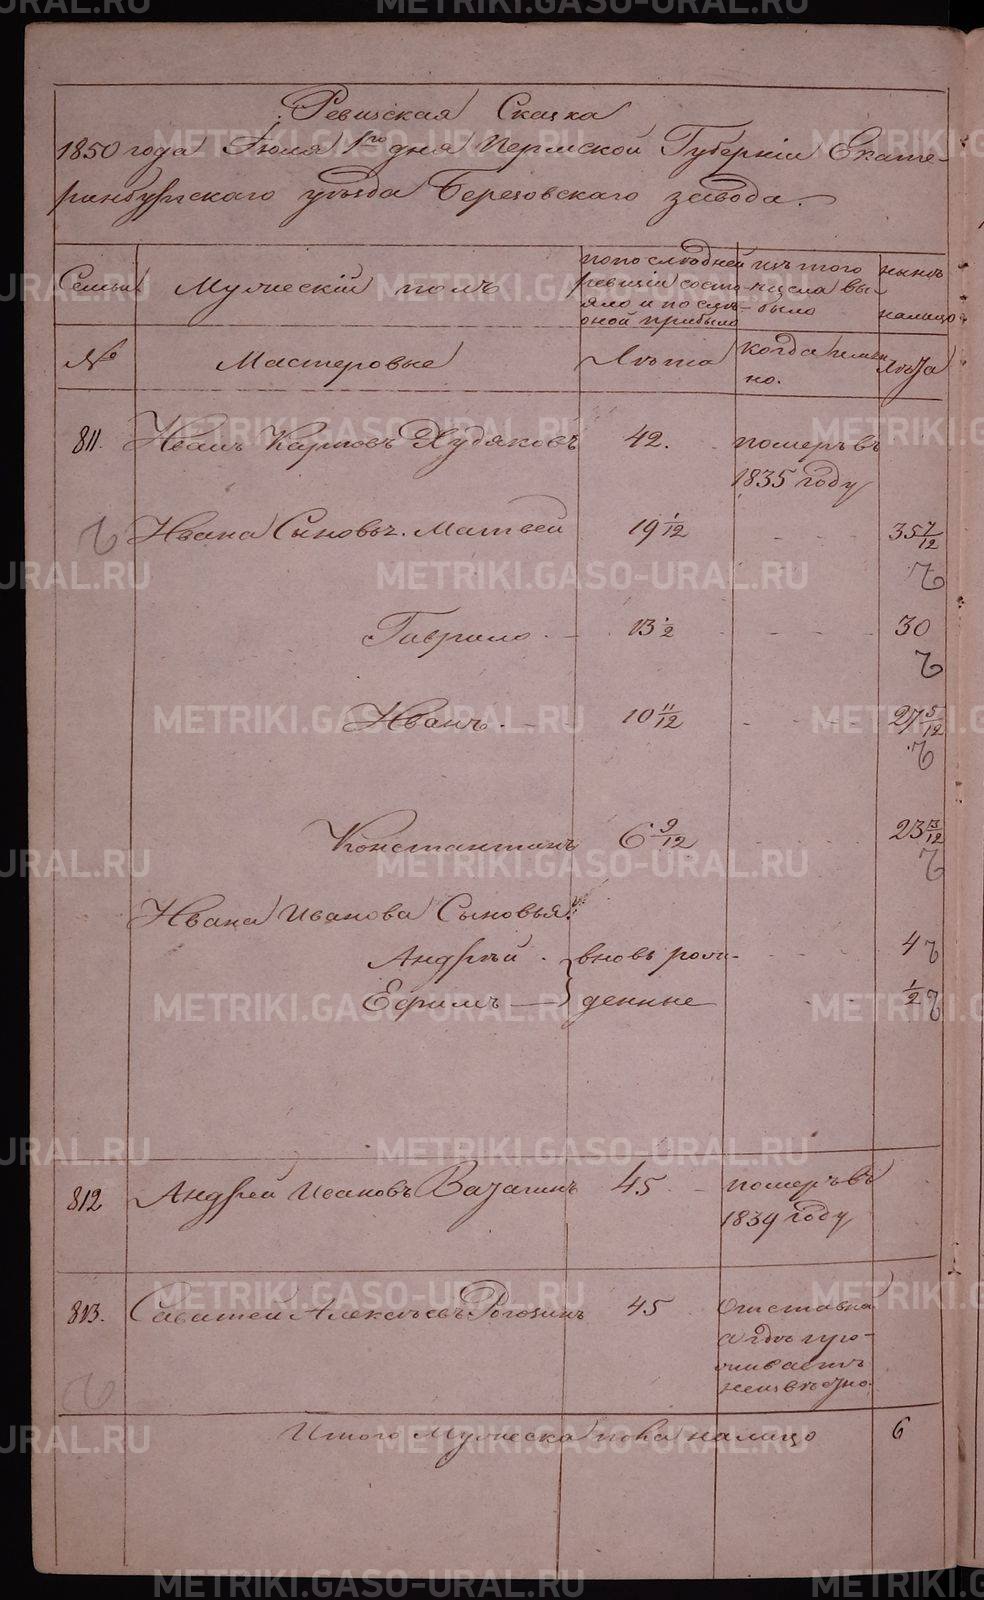 Ревизская Сказка
1850 года Іюля 1го дня Пермской Губерніи Екате-
ринбургскаго уѣзда Березовскаго завода.
Семьи
Мужескій полъ
по послѣдней ревизіи состояло и послѣ оной прибыло
изъ того числа выбыло
нынѣ налицо
№
Мастеровые
Лѣта
когда именно.
Лѣта
811. Иванъ Карповъ Худяковъ 42. померъ въ
1835 году
Ивана Сыновья. Матвей 19 1/12 35 7/12
Гаврило 13 1/2 30
Иванъ 10 11/12 27 5/12
Константинъ 6 9/12 23 3/12
Ивана Иванова Сыновья:
Андрей вновь рож- 4
Ефимъ денные 1/2
812 Андрей Ивановъ 45 померъ въ
1839 году
813. Саватей Алексѣевъ Рогозинъ 45 Отставной
а гдѣ
неизвѣстно.
Итого Мужеска пола налицо 6
METRIKI.GASO-URAL.RU